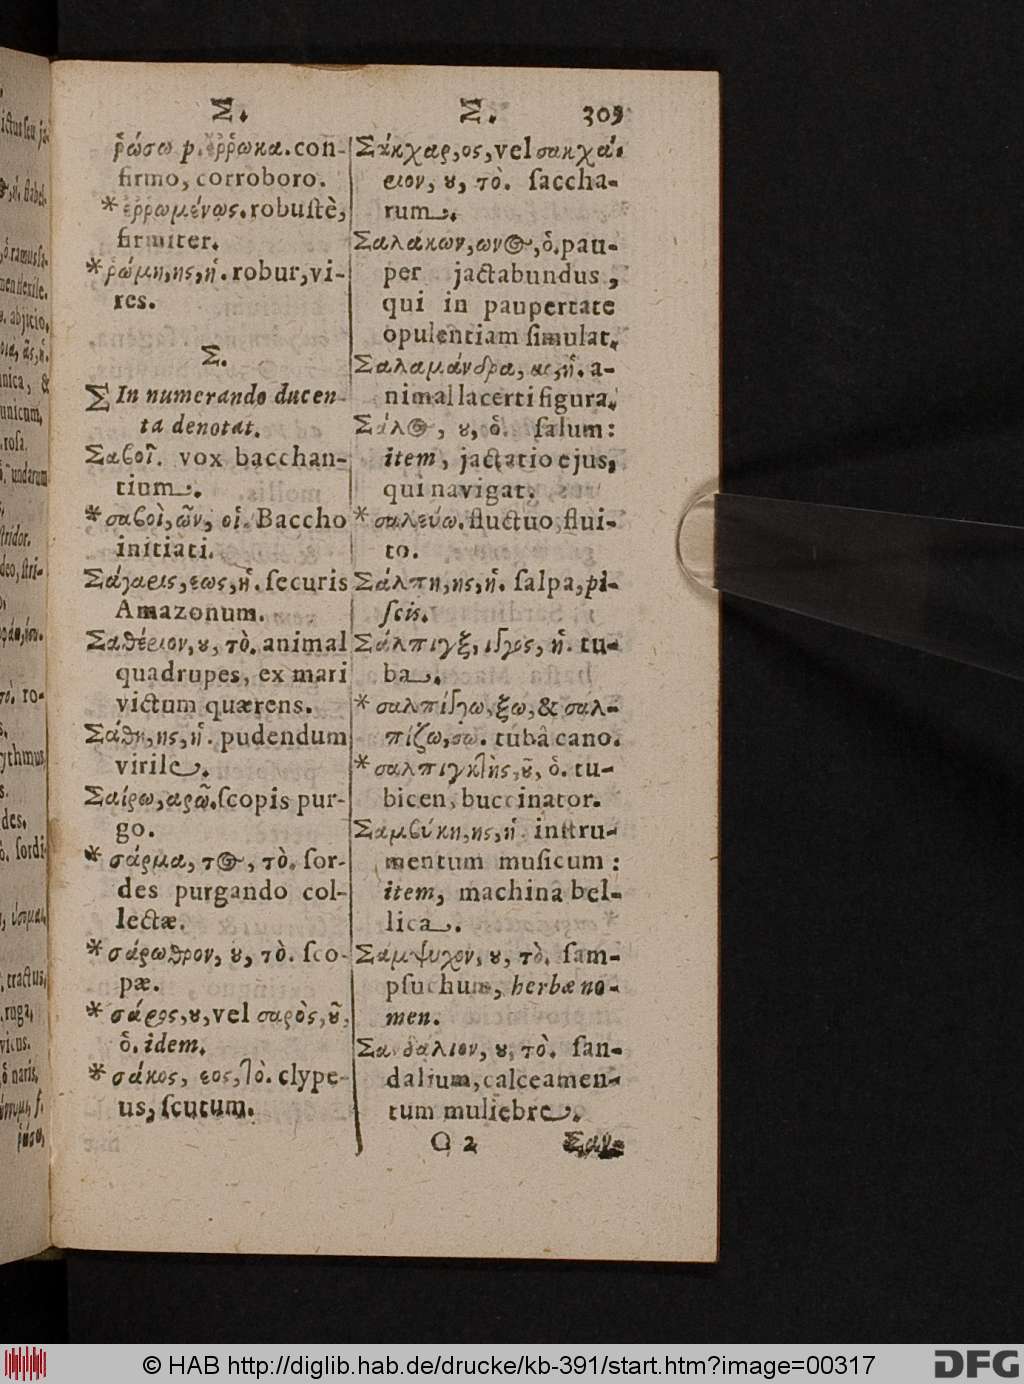 Σ.
Σ. 309
ῥώσω p. ἔῤῥωκα. con-
firmo, corroboro.
* ἐῤῥωμένως. robustè,
firmiter.
* ῥώμη, ης, ἡ. robur, vi-
res.
Σ.
Σ In numerando ducen-
ta denotat.
Σαβοῖ. vox bacchan-
tium.
* σαβοὶ, ῶν, οἱ. Baccho
initiati.
Σάγαρις, εως, ἡ. securis
Amazonum.
Σαθέριον, ου, τὸ. animal
quadrupes, ex mari
victum quærens.
Σάθη, ης, ἡ. pudendum
virile.
Σαίρω, αρῶ. scopis pur-
go.
* σάρμα, τος, τὸ. sor-
des purgando col-
lectæ.
* σάρωθρον, ου, τὸ. sco-
pæ.
* σάρος, ου, vel σαρὸς, οῦ,
ὁ. idem.
* σάκος, εος, τὸ. clype-
us, scutum.
Σάκχαρ, ος, vel σακχά-
ριον, ου, τὸ. saccha-
rum.
Σαλάκων, ωνος, ὁ. pau-
per jactabundus,
qui in paupertate
opulentiam simulat.
Σαλαμάνδρα, ας, ἡ. a-
nimal lacerti figura.
Σάλος, ου, ὁ. salum:
item, jactatio ejus,
qui navigat.
* σαλεύω. fluctuo, flui-
to.
Σάλπη, ης, ἡ. salpa, pi-
scis.
Σάλπιγξ, ιγγος, ἡ. tu-
ba.
* σαλπίγγω, ξω, & σαλ-
πίζω, σω. tubâ cano.
* σαλπιγκτὴς, οῦ, ὁ. tu-
bicen, buccinator.
Σαμβύκη, ης, ἡ. instru-
mentum musicum:
item, machina bel-
lica.
Σαμψυχον, ου, τὸ. sam-
psuchum, herbæ no-
men.
Σανδάλιον, ου, τὸ. san-
dalium, calceamen-
tum muliebre.
2 Σαν-
© HAB http://diglib.hab.de/drucke/kb-391/start.htm?image=00317
DFG